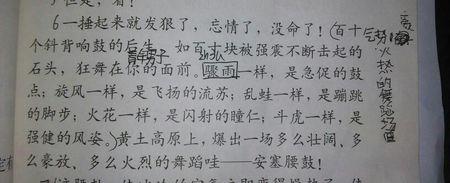 6一捶起来就发狠了，忘情了，没命了！百十
个斜背响鼓的后生，如百十块被强震不断击起的
青年男子
石头，狂舞在你的面前。骤雨一样，是急促的鼓
点；旋风一样，是飞扬的流苏；乱蛙一样，是蹦跳
的脚步；火花一样，是闪射的瞳仁；斗虎一样，是
强健的风姿。黄土高原上，爆出一场多么壮阔、多
么豪放、多么火烈的舞蹈哇——安塞腰鼓！
火热的舞蹈场面